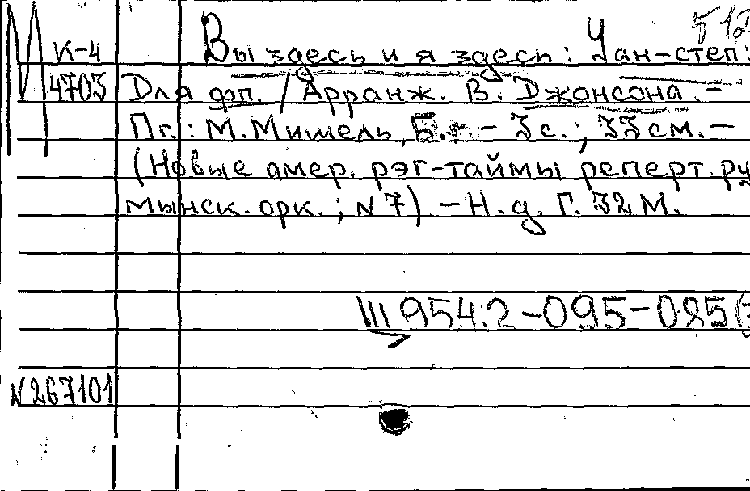 512
М К-4 Вы здесь и я здесь: Уан-степ:
4703 Для фп. / Арранж. В. Джонсона. –
Пг.: М. Мишель, Б.г. – 3 с.; 33 см. –
(Новые амер. рэг-таймы реперт. ру
мынск. орк.; N 7) – Н. д. Г. 32 М.
Ш 954.2-095-085
N 267101